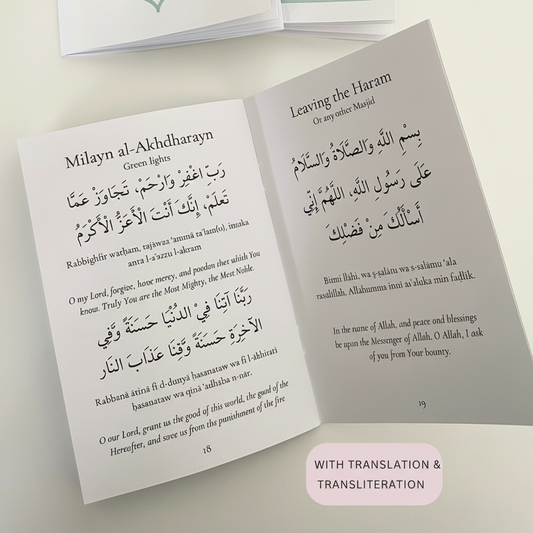 Milayn al-Akhdharayn
Green lights
رَبِّ اغْفِرْ وَارْحَمْ، تَجَاوَزْ عَمَّا
تَعْلَمْ، إِنَّكَ أَنْتَ الْأَعَزُّ الْأَكْرَمُ
Rabbighfir warham, tajāwaz 'ammā ta'lam(o), innaka
anta l-a'azzu l-akram
O my Lord, forgive, have mercy, and pardon that which You
know. Truly You are the Most Mighty, the Most Noble.
رَبَّنَا آتِنَا فِيْ الدُّنْيَا حَسَنَةً وَّفِي
الآخِرَةِ حَسَنَةً وَّقِنَا عَذَابَ النَّار
Rabbanā ātinā fi d-dunyā ḥasanataw wa fi l-ākhirati
ḥasanataw wa qinā 'adhāba n-nār.
O our Lord, grant us the good of this world, the good of the
Hereafter, and save us from the punishment of the fire
18
Leaving the Haram
Or any other Masjid
بِسْمِ اللَّهِ وَالصَّلَاةُ وَالسَّلَامُ
عَلَى رَسُولِ اللَّهِ، اللَّهُمَّ إِنِّي
أَسْأَلُكَ مِنْ فَضْلِكَ
Bismi llāhi, wa ṣ-ṣalātu wa s-salāmu 'ala
rasulillah. Allahumma inni as'aluka min faḍlik.
In the name of Allah, and peace and blessings
be upon the Messenger of Allah. O Allah, I ask
of you from Your bounty.
19
WITH TRANSLATION &
TRANSLITERATION